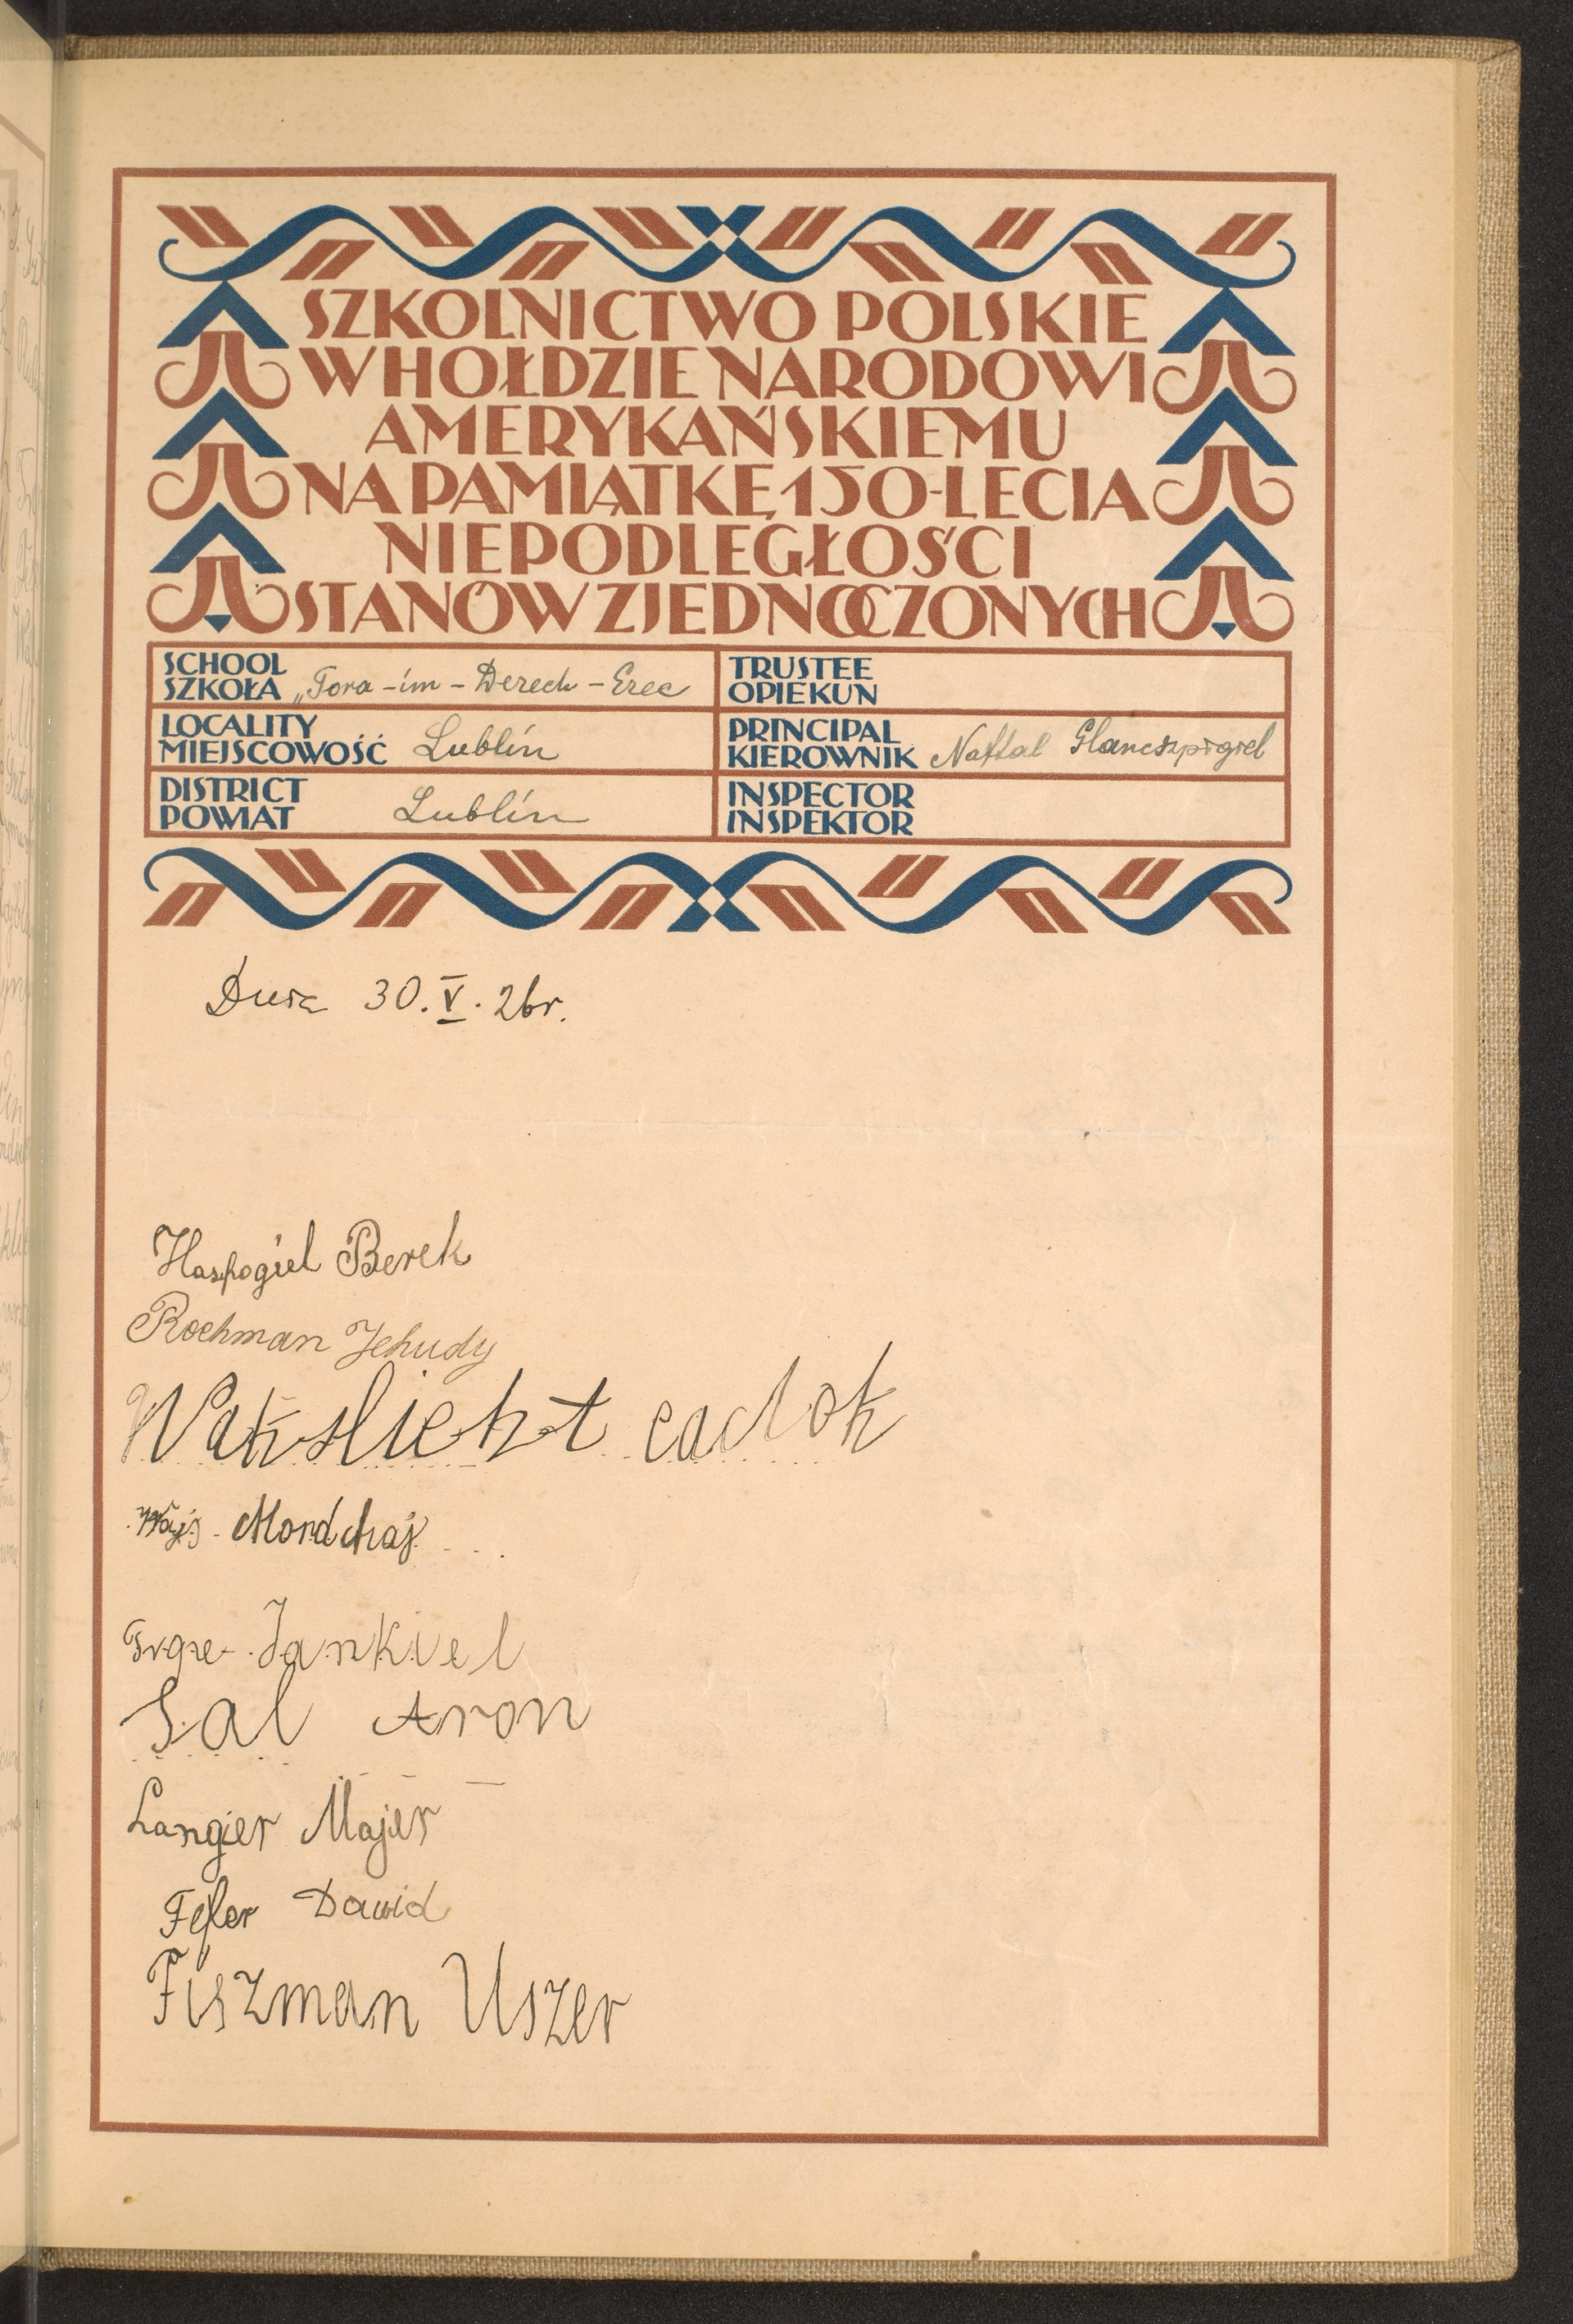 SZKOLNICTWO POLSKIE
W HOŁDZIE NARODOWI
AMERYKAŃSKIEMU
NA PAMIĄTKĘ 150-LECIA
NIEPODLEGŁOŚCI
STANÓW ZJEDNOCZONYCH
SCHOOL
SZKOŁA „Tora-im-Derech-Erec
TRUSTEE
OPIEKUN
LOCALITY
MIEJSCOWOŚĆ Lublin
PRINCIPAL
KIEROWNIK Naftal Glancszpigiel
DISTRICT
POWIAT Lublin
INSPECTOR
INSPEKTOR
Dnia 30.V.26r.
Haszpogiel Berek
Rochman Jehudy
Wakslicht cadok
Wajs Mordchaj
Jankiel
Sal Aron
Langier Majer
Fefer Dawid
Fiszman Uszer